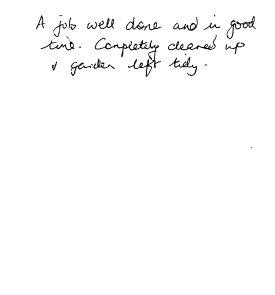 A job well done and in good
time. Completely cleared up
& garden left tidy.